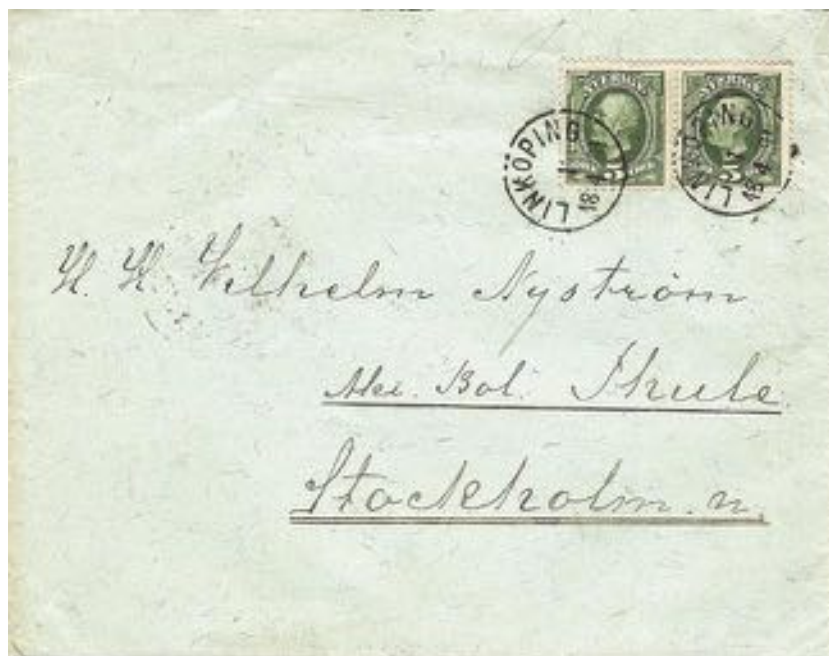 SVERIGE SVERIGE
5 5
LINKÖPING LINKÖPING
H. H. Vilhelm Nyström
Akt. Bol. Thule
Stockholm. n.